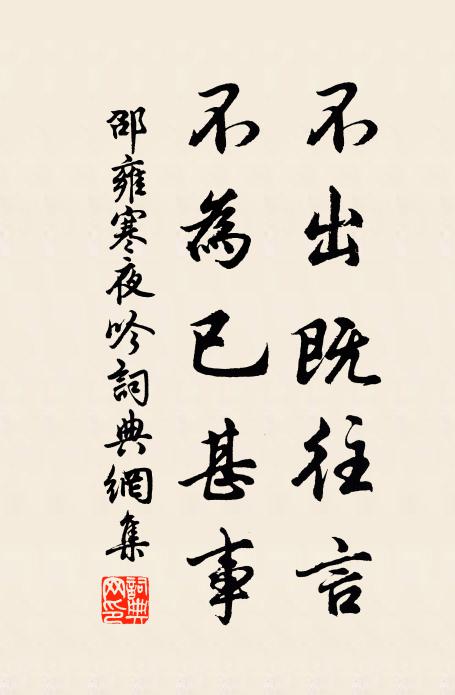 不出既往言
不為已甚事
邵雍寒夜吟詞典網集
詞典网印